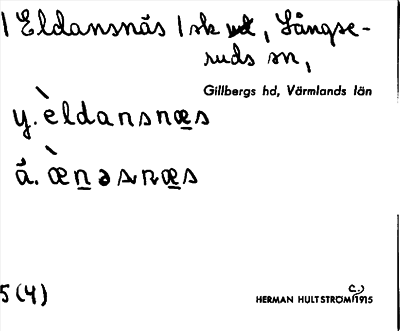 | Eldansnäs | sk , Långse-
ruds sn,
Gillbergs hd, Värmlands län
y. èldansnæs
ä. æ̀nəsnæs
5 (4)
HERMAN HULTSTRÖM (C.) 1915